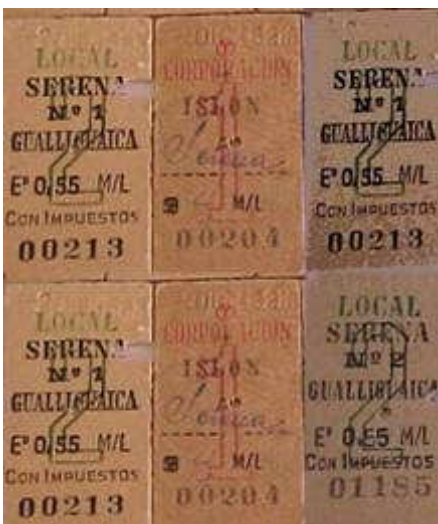 LOCAL
SERENA
Nº 1
GUALLIGUAICA
Eº 0,55 M/L
CON IMPUESTOS
00213
CORPORACION
ISLON
A
Serena
M/L
00204
LOCAL
SERENA
Nº 1
GUALLIGUAICA
Eº 0,55 M/L
CON IMPUESTOS
00213
LOCAL
SERENA
Nº 1
GUALLIGUAICA
Eº 0,55 M/L
CON IMPUESTOS
00213
CORPORACION
ISLON
A
Serena
M/L
00204
LOCAL
SERENA
Nº 2
GUALLIGUAICA
Eº M/L
CON IMPUESTOS
01185